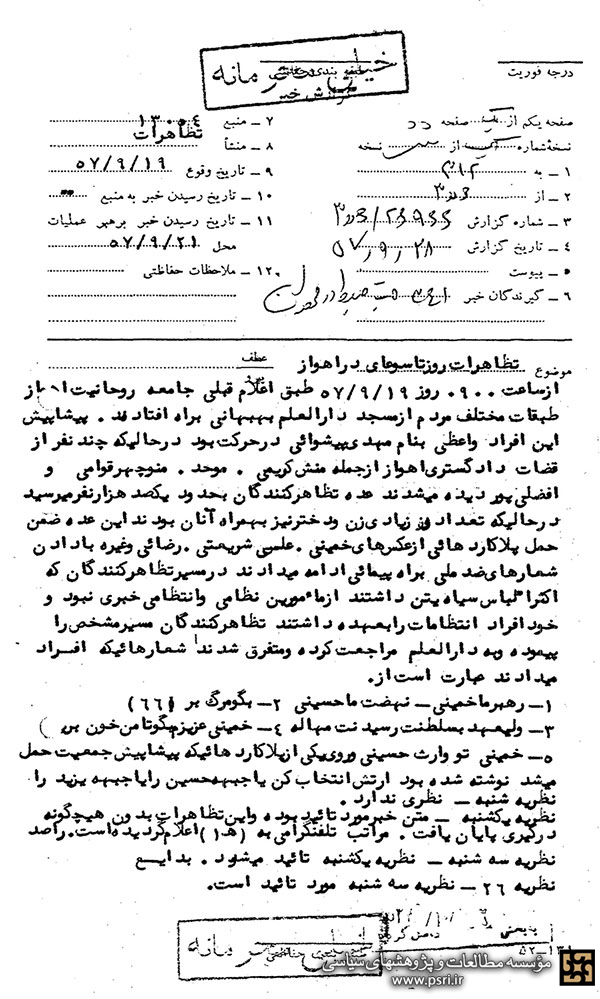 خیلی محرمانه
درجه فوریت
گزارش خبر
صفحه یکم از یک صفحه
نسخه شماره از نسخه
۱ ـ به ۳۱۲
۲ ـ از
۳ ـ شماره گزارش
۴ ـ تاریخ گزارش ۵۷/۹/۲۸
۵ ـ پیوست
۶ ـ گیرندگان خبر
۷ ـ منبع ۱۳۰۰۴
۸ ـ منشأ تظاهرات
۹ ـ تاریخ وقوع ۵۷/۹/۱۹
۱۰ ـ تاریخ رسیدن خبر به منبع ــ
۱۱ ـ تاریخ رسیدن خبر برهبر عملیات
محل ۵۷/۹/۲۱
۱۲ ـ ملاحظات حفاظتی
موضوع تظاهرات روز تاسوعای در اهواز
عطف
از ساعت ۰۹۰۰ روز ۵۷/۹/۱۹ طبق اعلام قبلی جامعه روحانیت اهواز
طبقات مختلف مردم از مسجد دارالعلم بهبهانی براه افتادند . پیشاپیش
این افراد واعظی بنام مهدی پیشوائی در حرکت بود در حالیکه چند نفر از
قضات دادگستری اهواز از جمله منش کریمی . موحد . منوچهر قوامی و
افضلی پور دیده میشدند عده تظاهرکنندگان بحدود یکصد هزار نفر میرسید
در حالیکه تعداد زیادی زن و دختر نیز بهمراه آنان بودند این عده ضمن
حمل پلاکاردهائی از عکس‌های خمینی . علی شریعتی . رضائی وغیره با دادن
شعارهای ضد ملی براه پیمائی ادامه میدادند در مسیر تظاهرکنندگان که
اکثرا لباس سیاه بتن داشتند از مامورین نظامی و انتظامی خبری نبود و
خود افراد انتظامات را بعهده داشتند تظاهرکنندگان مسیر مشخص را
پیموده و به دارالعلم مراجعت کرده و متفرق شدند شعارهائیکه افراد
میدادند عبارت است از.
۱ ـ رهبر ما خمینی ـ نهضت ما حسینی ۲ ـ بگو مرگ بر (۶۶)
۳ ـ ولیعهد بسلطنت رسیدنت محاله ۴ ـ خمینی عزیز بگو تا من خون بریزم
۵ ـ خمینی تو وارث حسینی و روی یکی از پلاکاردهائیکه پیشاپیش جمعیت حمل
میشد نوشته شده بود ارتش انتخاب کن یا جبهه حسین را یا جبهه یزید را
نظریه شنبه ـ نظری ندارد .
نظریه یکشنبه ـ متن خبر مورد تائید بوده و این تظاهرات بدون هیچگونه
درگیری پایان یافت . مراتب تلفنگرامی به (هـ۱) اعلام گردیده است. راصد
نظریه سه شنبه ـ نظریه یکشنبه تائید میشود . بدایع
نظریه ۲۶ ـ نظریه سه شنبه مورد تائید است.
خیلی محرمانه
مؤسسه مطالعات و پژوهشهای سیاسی
www.psri.ir